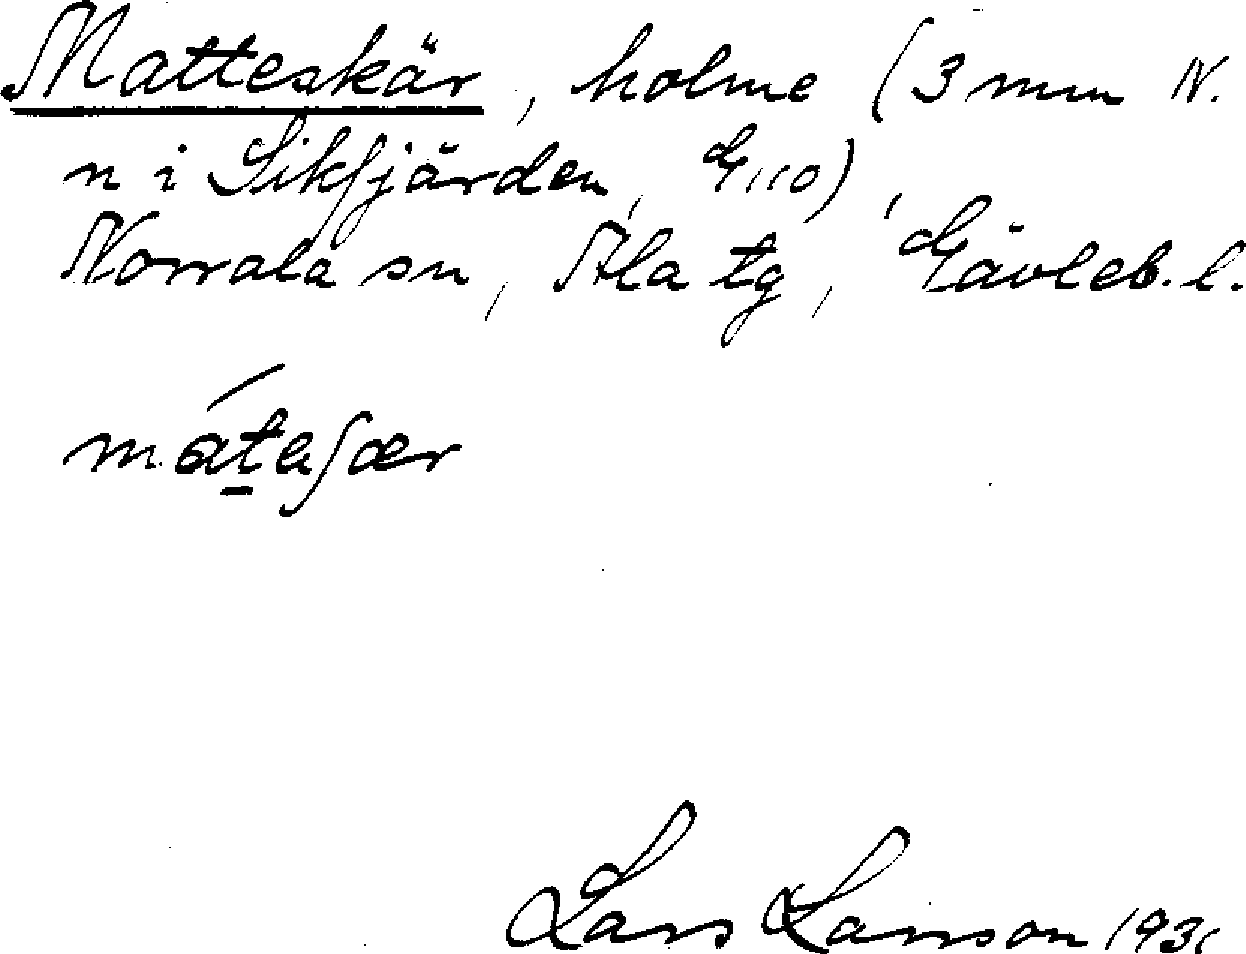 Matteskär, holme (3 mm N.
n i Sikfjärden, G 110),
Norrala sn, Ala tg, Gävleb. l.
Lars Larsson 1931